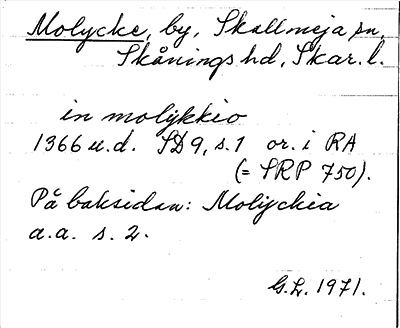 Molycke, by, Skallmeja sn,
Skånings hd, Skar. l.
in molÿkkio
1366 u.d. SD 9, s. 1 or. i RA
(= SRP 750).
På baksidan: Molyckia
a.a. s. 2.
G.L. 1971.